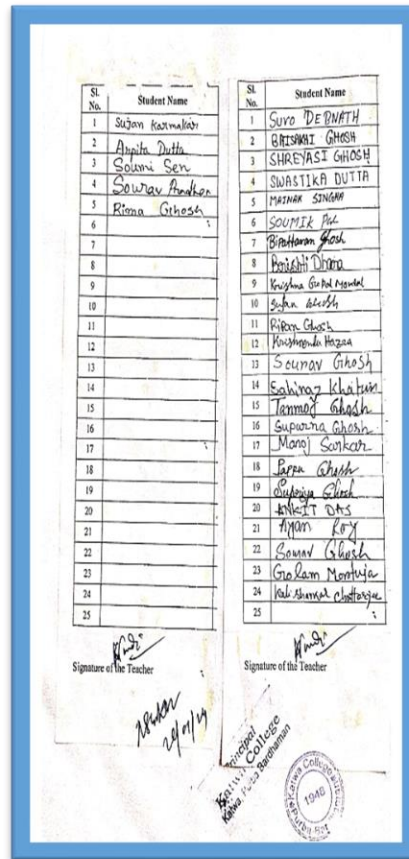 Sl. No. Student Name
1 Sujan Karmakar
2 Arpita Dutta
3 Soumi Sen
4 Sourav
5 Rima Ghosh
6
7
8
9
10
11
12
13
14
15
16
17
18
19
20
21
22
23
24
25
Signature of the Teacher
Sl. No. Student Name
1 Suvo DEBNATH
2 BAISAKHI GHOSH
3 SHREYASI GHOSH
4 SWASTIKA DUTTA
5 MAINAK SINGHA
6 SOUMIK Pal
7 Bipattaran Ghosh
8 Dhara
9 Krishna Gopal Mondal
10 Sujan Ghosh
11 Ripan Ghosh
12 Krishnendu Hazra
13 Sourav Ghosh
14 Sahinaz Khatun
15 Tanmoy Ghosh
16 Suparna Ghosh
17 Manoj Sarkar
18 Pappa Ghosh
19 Supriya Ghosh
20 ANKIT DAS
21 Ayan Roy
22 Sourav Ghosh
23 Golam Mortuja
24 Kali shankar Chatterjee
25
Signature of the Teacher
Principal
Katwa College
Katwa, Purba Bardhaman
Katwa College
1948